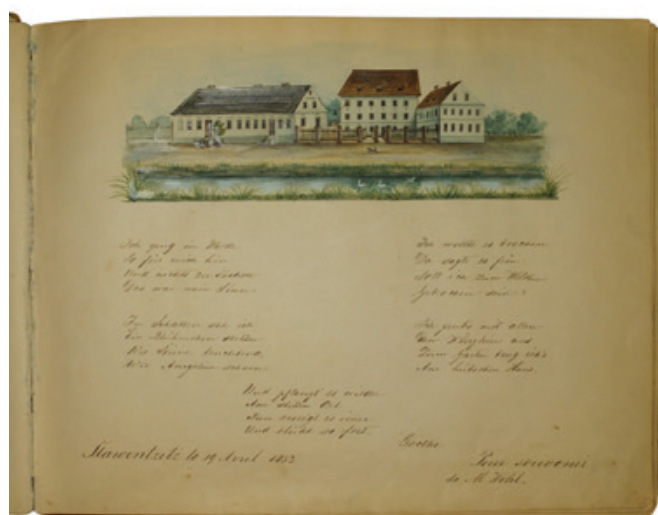 Ich ging im Walde
So für mich hin
Und nichts zu suchen
Das war mein Sinn.
Im Schatten sah ich
Ein Blümchen stehen
Wie leuchtend,
Wie Äuglein schön.
Ich wollte es brechen
Da sagte es fein
Soll ich zum Welken
Gebrochen sein?
Ich grubs mit allen
Den Würzlein aus
Zum Garten trug ich's
Am hübschen Haus.
Und pflanzt es wieder
Am stillen Ort
Nun zweigt es immer
Und blüht so fort.
Goethe
Slawentzitz le 19 Avril 1852
Pour souvenir
de M.